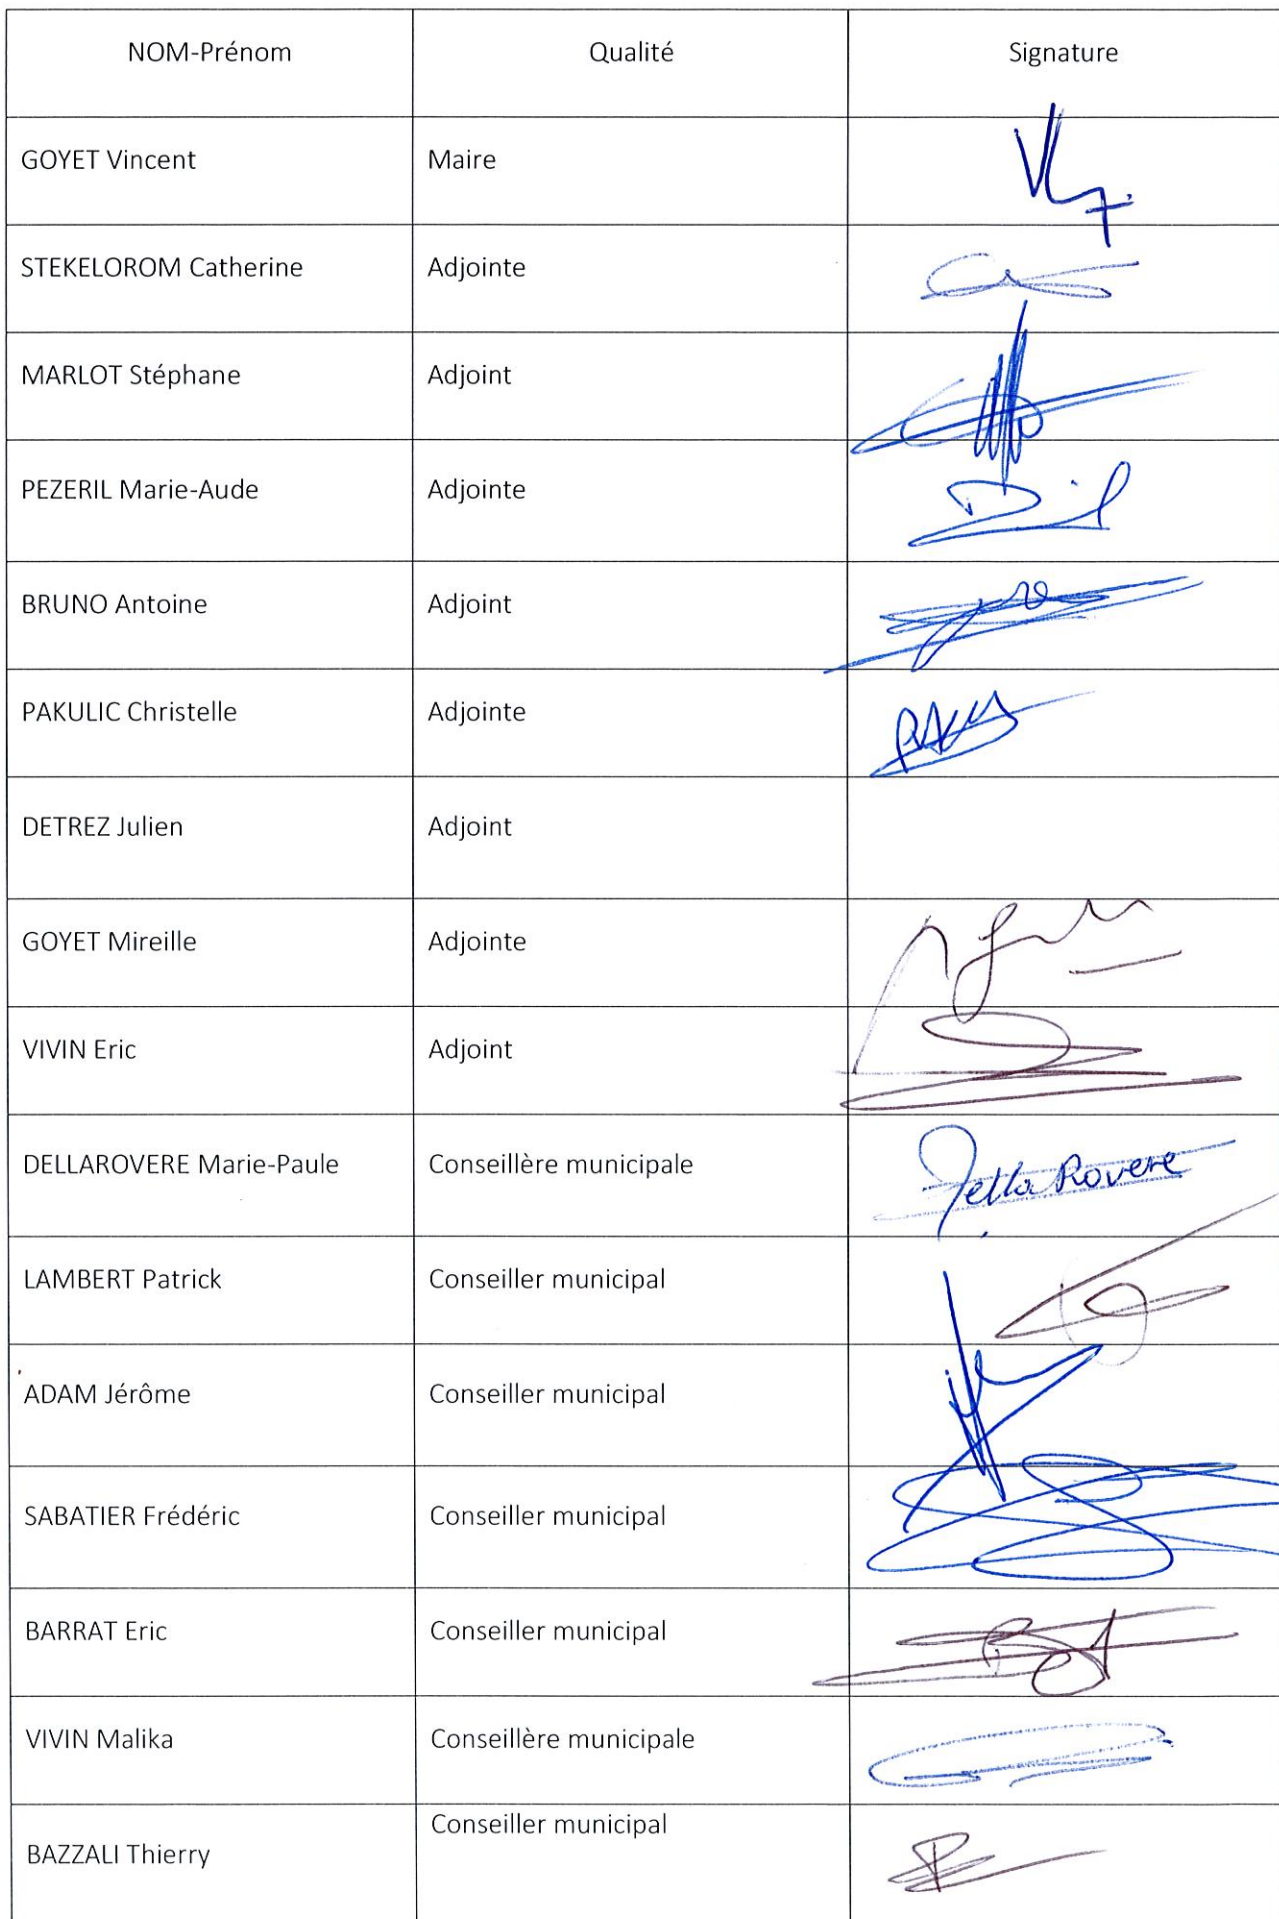 NOM-Prénom Qualité Signature
GOYET Vincent Maire
STEKELOROM Catherine Adjointe
MARLOT Stéphane Adjoint
PEZERIL Marie-Aude Adjointe
BRUNO Antoine Adjoint
PAKULIC Christelle Adjointe
DETREZ Julien Adjoint
GOYET Mireille Adjointe
VIVIN Eric Adjoint
DELLAROVERE Marie-Paule Conseillère municipale Della Rovere
LAMBERT Patrick Conseiller municipal
ADAM Jérôme Conseiller municipal
SABATIER Frédéric Conseiller municipal
BARRAT Eric Conseiller municipal
VIVIN Malika Conseillère municipale
BAZZALI Thierry Conseiller municipal